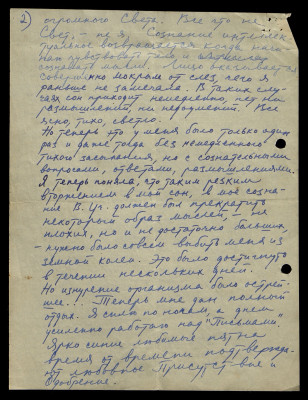 2)
огромного Света. Все это не
Свет, - не я, Сознание интеллек
туальное возвращается, когда начи
наю чувствовать тело, и
сознавать мысли. Лицо всегда бывает
совершенно мокрым от слез, чего я
раньше не замечала. В таких слу-
чаях сон приходит немедленно, нет ни
размышлений, ни недоумений. Все
ясно, тихо, светло.
Но теперь это у меня было только один
раз и даже тогда без немедленного
тихого засыпания, но с сознательными
вопросами, ответами, размышлениями.
Я теперь поняла, что таким резким
вторжением в мой сон, в мое созна-
ние В. Уч. должен был прекратить
некоторый образ мыслей, - не
плохих, но и не достаточно больших,
- нужно было совсем выбить меня из
земной колеи. Это было достигнуто
в течении нескольких дней.
Но изнурение организма было острей-
шее.!.. Теперь мне дан полный
отдых. Я сплю по ночам, а днем
усиленно работаю над "Письмами".
Ярко синие любимые пятна
время от времени подтвержда-
ют любовное Присутствие и
Одобрение.